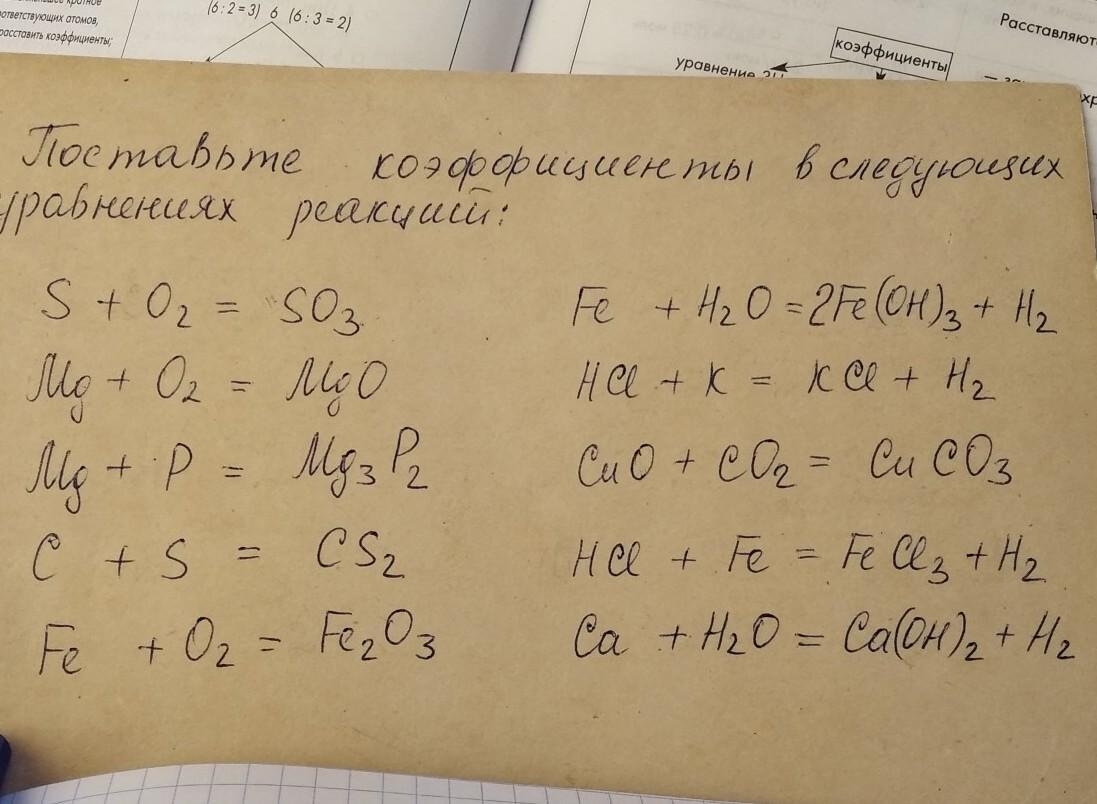 ответствующих атомов,
расставить коэффициенты;
(6 : 2 = 3) 6 (6 : 3 = 2)
уравнение
коэффициенты
Расставляют
Поставьте коэффициенты в следующих
уравнениях реакций:
S + O₂ = SO₃
Mg + O₂ = MgO
Mg + P = Mg₃P₂
C + S = CS₂
Fe + O₂ = Fe₂O₃
Fe + H₂O = 2Fe(OH)₃ + H₂
HCl + K = KCl + H₂
CuO + CO₂ = CuCO₃
HCl + Fe = FeCl₃ + H₂
Ca + H₂O = Ca(OH)₂ + H₂